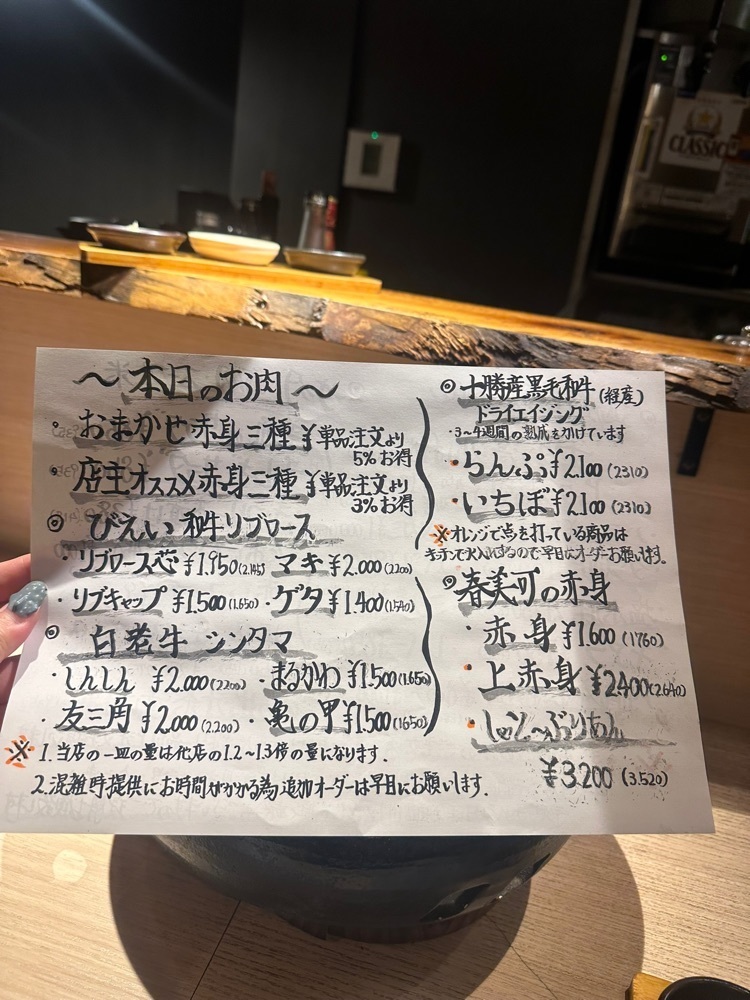 CLASSIC
～本日のお肉～
・おまかせ赤身三種 ¥単品注文より
5%お得
・店主オススメ赤身三種 ¥単品注文より
3%お得
◎ びえい和牛リブロース
・リブロース芯 ¥1.950(2.145) マキ ¥2.000(2.200)
・リブキャップ ¥1.500(1.650)・ゲタ ¥1.400(1.540)
◎ 白老牛 シンタマ
・しんしん ¥2.000(2.200)・まるかわ ¥1.500(1.650)
・友三角 ¥2.000(2.200)・亀の甲 ¥1.500(1650)
※1.当店の一皿の量は他店の1.2~1.3倍の量になります.
2.混雑時提供にお時間がかかる為追加オーダーは早目にお願いします.
◎十勝産黒毛和牛(経産)
ドライエイジング
・3~4週間の熟成を
・らんぷ ¥2.100(2310)
・いちぼ ¥2.100(2310)
※オレンジで点を打っている商品は
キッチンで火入れするので早目にオーダーお願いします.
◎春美町の赤身
・赤身 ¥1.600(1760)
・上赤身 ¥2.400(2.640)
・しゃと～ぶりあん
¥3.200(3.520)